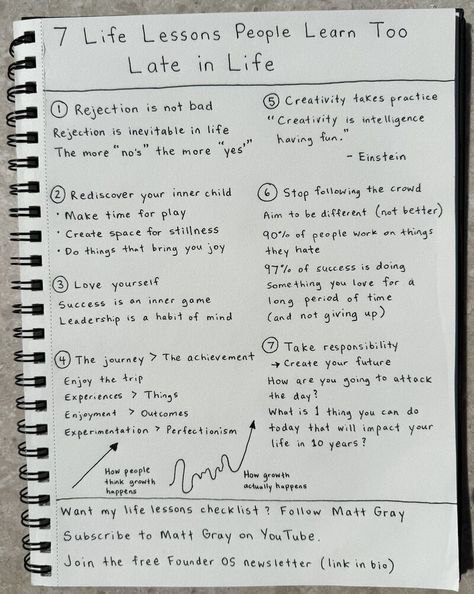 7 Life Lessons People Learn Too
Late in Life
① Rejection is not bad
Rejection is inevitable in life
The more "no's" the more "yes'"
② Rediscover your inner child
• Make time for play
• Create space for stillness
• Do things that bring you joy
③ Love yourself
Success is an inner game
Leadership is a habit of mind
④ The journey > The achievement
Enjoy the trip
Experiences > Things
Enjoyment > Outcomes
Experimentation > Perfectionism
How people
think growth
happens
How growth
actually happens
⑤ Creativity takes practice
"Creativity is intelligence
having fun."
- Einstein
⑥ Stop following the crowd
Aim to be different (not better)
90% of people work on things
they hate
97% of success is doing
something you love for a
long period of time
(and not giving up)
⑦ Take responsibility
→ Create your future
How are you going to attack
the day?
What is 1 thing you can do
today that will impact your
life in 10 years?
Want my life lessons checklist? Follow Matt Gray
Subscribe to Matt Gray on YouTube.
Join the free Founder OS newsletter (link in bio)